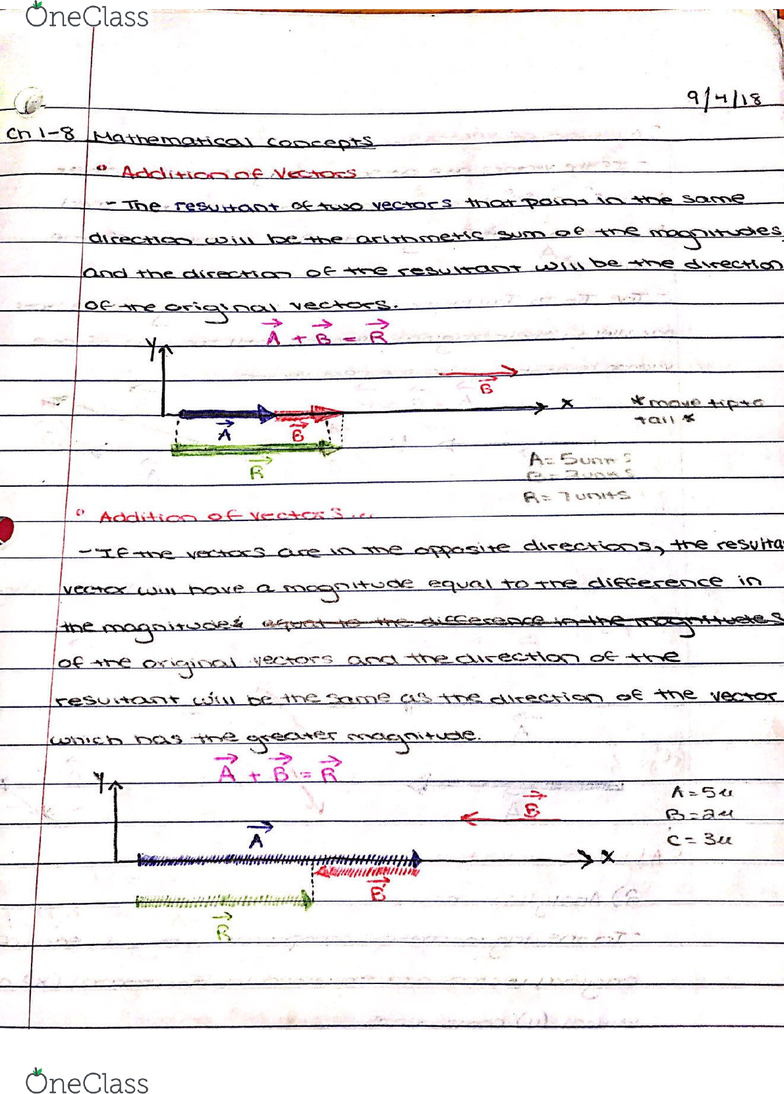 OneClass
9/4/18
Ch 1-8 Mathematical concepts
Addition of Vectors
- The resultant of two vectors that point in the same
direction will be the arithmetic sum of the magnitudes
and the direction of the resultant will be the direction
of the original vectors.
A + B = R
Y
B
X
*move tip to
tail *
A
B
R
A= 5 units
B= 2 units
R= 7 units
Addition of vectors...
- If the vectors are in the opposite directions, the resulta
vector will have a magnitude equal to the difference in
the magnitudes equal to the difference in the magnitudes
of the original vectors and the direction of the
resultant will be the same as the direction of the vector
which has the greater magnitude.
A + B = R
Y
A
B
A= 5u
B= 2u
C= 3u
X
B
R
OneClass